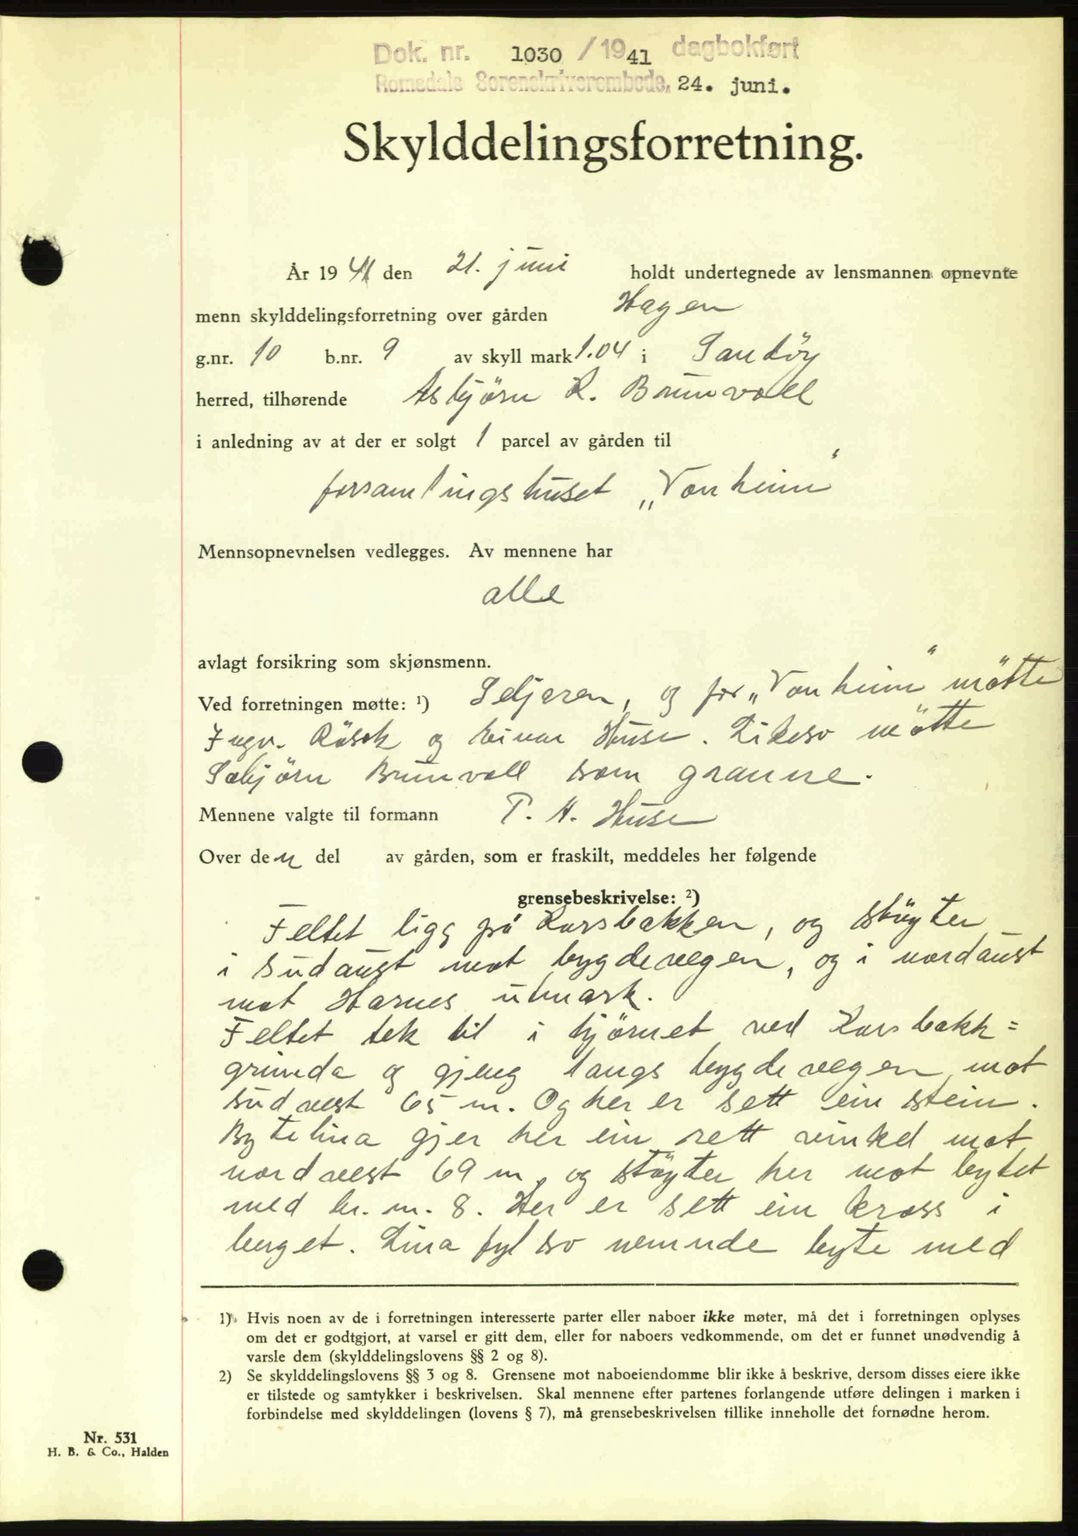 Dok. nr. 1030 / 1941 dagbokført
Romsdals Sorenskriverembede, 24. juni.
Skylddelingsforretning.
År 1941 den 21. juni holdt undertegnede av lensmannen opnevnte
menn skylddelingsforretning over gården Hagen
g.nr. 10 b.nr. 9 av skyll mark 1.04 i Sandöy
herred, tilhørende Asbjörn K. Brunvoll
i anledning av at der er solgt 1 parcel av gården til
forsamlingshuset „Vonheim"
Mennsopnevnelsen vedlegges. Av mennene har
alle
avlagt forsikring som skjønsmenn.
Ved forretningen møtte: ¹) Seljaren, og for „Vonheim" mötte
Ingv. Rösok og Einar Huse. Likeso mötte
Asbjörn Brunvoll som granne.
Mennene valgte til formann P. A. Huse
Over den del av gården, som er fraskilt, meddeles her følgende
grensebeskrivelse: ²)
Feltet ligg på Korsbakken, og stöyter
i sudaust mot bygdevegen, og i nordaust
mot Harnes utmark.
Feltet tek til i hjörnet ved Korsbakk=
grinda og gjeng langs bygdevegen mot
sudvest 65 m. Og her er sett ein stein.
Bytelina gjer her ein rett vinkel mot
nordvest 69 m, og stöyter her mot bytet
med br. nr. 8. Her er sett ein kross i
berget. Lina fyl so nemnde byte med
1) Hvis noen av de i forretningen interesserte parter eller naboer ikke møter, må det i forretningen oplyses
om det er godtgjort, at varsel er gitt dem, eller for naboers vedkommende, om det er funnet unødvendig å
varsle dem (skylddelingslovens §§ 2 og 8).
2) Se skylddelingslovens §§ 3 og 8. Grensene mot naboeiendomme blir ikke å beskrive, dersom disses eiere ikke
er tilstede og samtykker i beskrivelsen. Skal mennene efter partenes forlangende utføre delingen i marken i
forbindelse med skylddelingen (lovens § 7), må grensebeskrivelsen tillike inneholle det fornødne herom.
Nr. 531
H. B. & Co., Halden